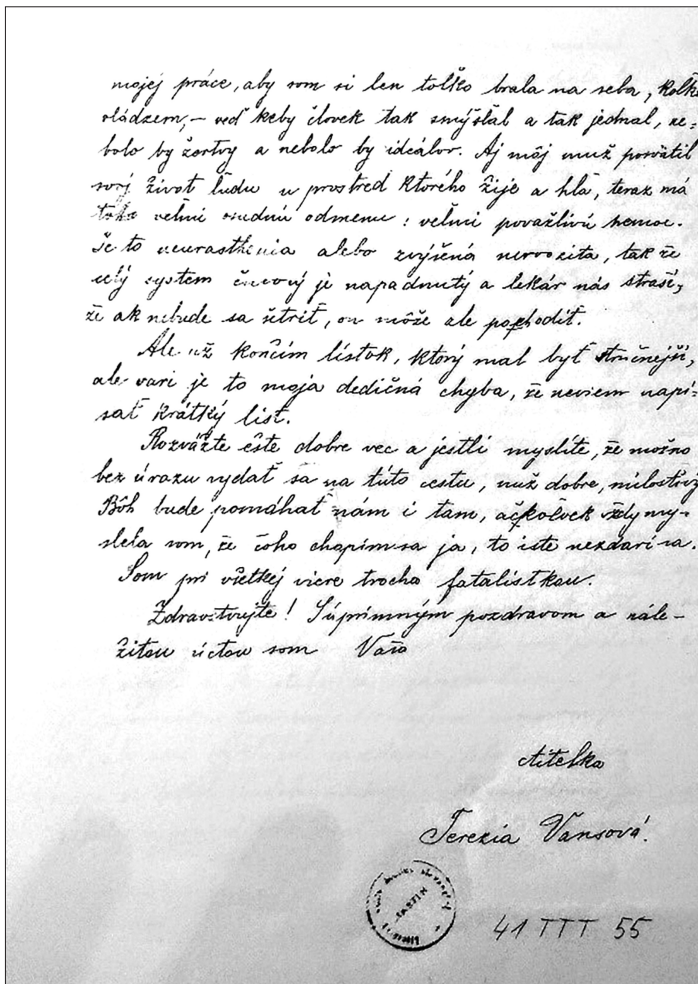 mojej práce, aby som si len toľko brala na seba, koľko
vládzem, – veď keby človek tak smýšľal a tak jednal, ne=
bolo by žertvy a nebolo by ideálov. Aj môj muž posvätil
svoj život ľudu u prostred ktorého žije a hľa, teraz má
toho veľmi osudnú odmenu: veľmi považlivú nemoc.
Je to neurasthenia alebo zvýšená nervozita, tak že
celý system čuvový je napadnutý a lekár nás straší,
že ak nebude sa šetriť, on môže ale pochodiť.
Ale už končím lístok, ktorý mal byť stručnejší,
ale vari je to moja dedičná chyba, že neviem napí=
sať krátky list.
Rozvážte ešte dobre vec a jestli myslíte, že možno
bez úrazu vydať sa na túto cestu, nuž dobre, milostivý
Bôh bude pomáhať nám i tam, ačkoľvek vždy my-
slela som, že čoho chopím sa ja, to iste nezdarí sa.
Som pri všetkej viere trocha fatalistkou.
Zdravstvujte! S úprimným pozdravom a nále-
žitou úctou som Vaša
ctiteľka
Terezia Vansová.
41 TTT 55